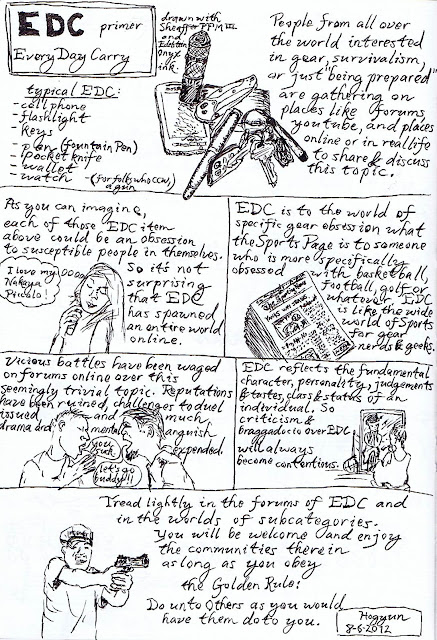 EDC primer
Every Day Carry
drawn with
Sheaffer PFM III
and
Edition
Onyx
ink
typical EDC:
- cell phone
- flashlight
- keys
- pen (fountain pen)
- pocket knife
- wallet
- watch - (for folks who CCW,
a gun
People from all over
the world interested
in gear, survivalism,
or just "being prepared"
are gathering on
places like forums,
youtube, and places
online or in real life
to share & discuss
this topic.
As you can imagine,
each of those EDC item
above could be an obsession
to susceptible people in themselves.
So it's not
surprising
that EDC
has spawned
an entire world
online.
I love my
Nakaya
Piccolo!
EDC is to the world of
specific gear obsession what
the Sports Page is to someone
who is more specifically
obsessed with basketball,
football, golf or
whatever. EDC
is like the wide
world of Sports
for gear
nerds & geeks.
Vicious battles have been waged
on forums online over this
seemingly trivial topic. Reputations
have been ruined, challenges to duel
issued and much
drama and mental anguish
expended.
you
suck
let's go
buddy!!
EDC reflects the fundamental
character, personality, judgements
& tastes, class & status of an
individual. So
criticism &
braggadocio over EDC
will always
become contentious.
Tread lightly in the forums of EDC and
in the worlds of subcategories.
You will be welcome and enjoy
the communities therein
as long as you obey
the Golden Rule:
Do unto Others as you would
have them do to you.
Hogyun
8-6-2012